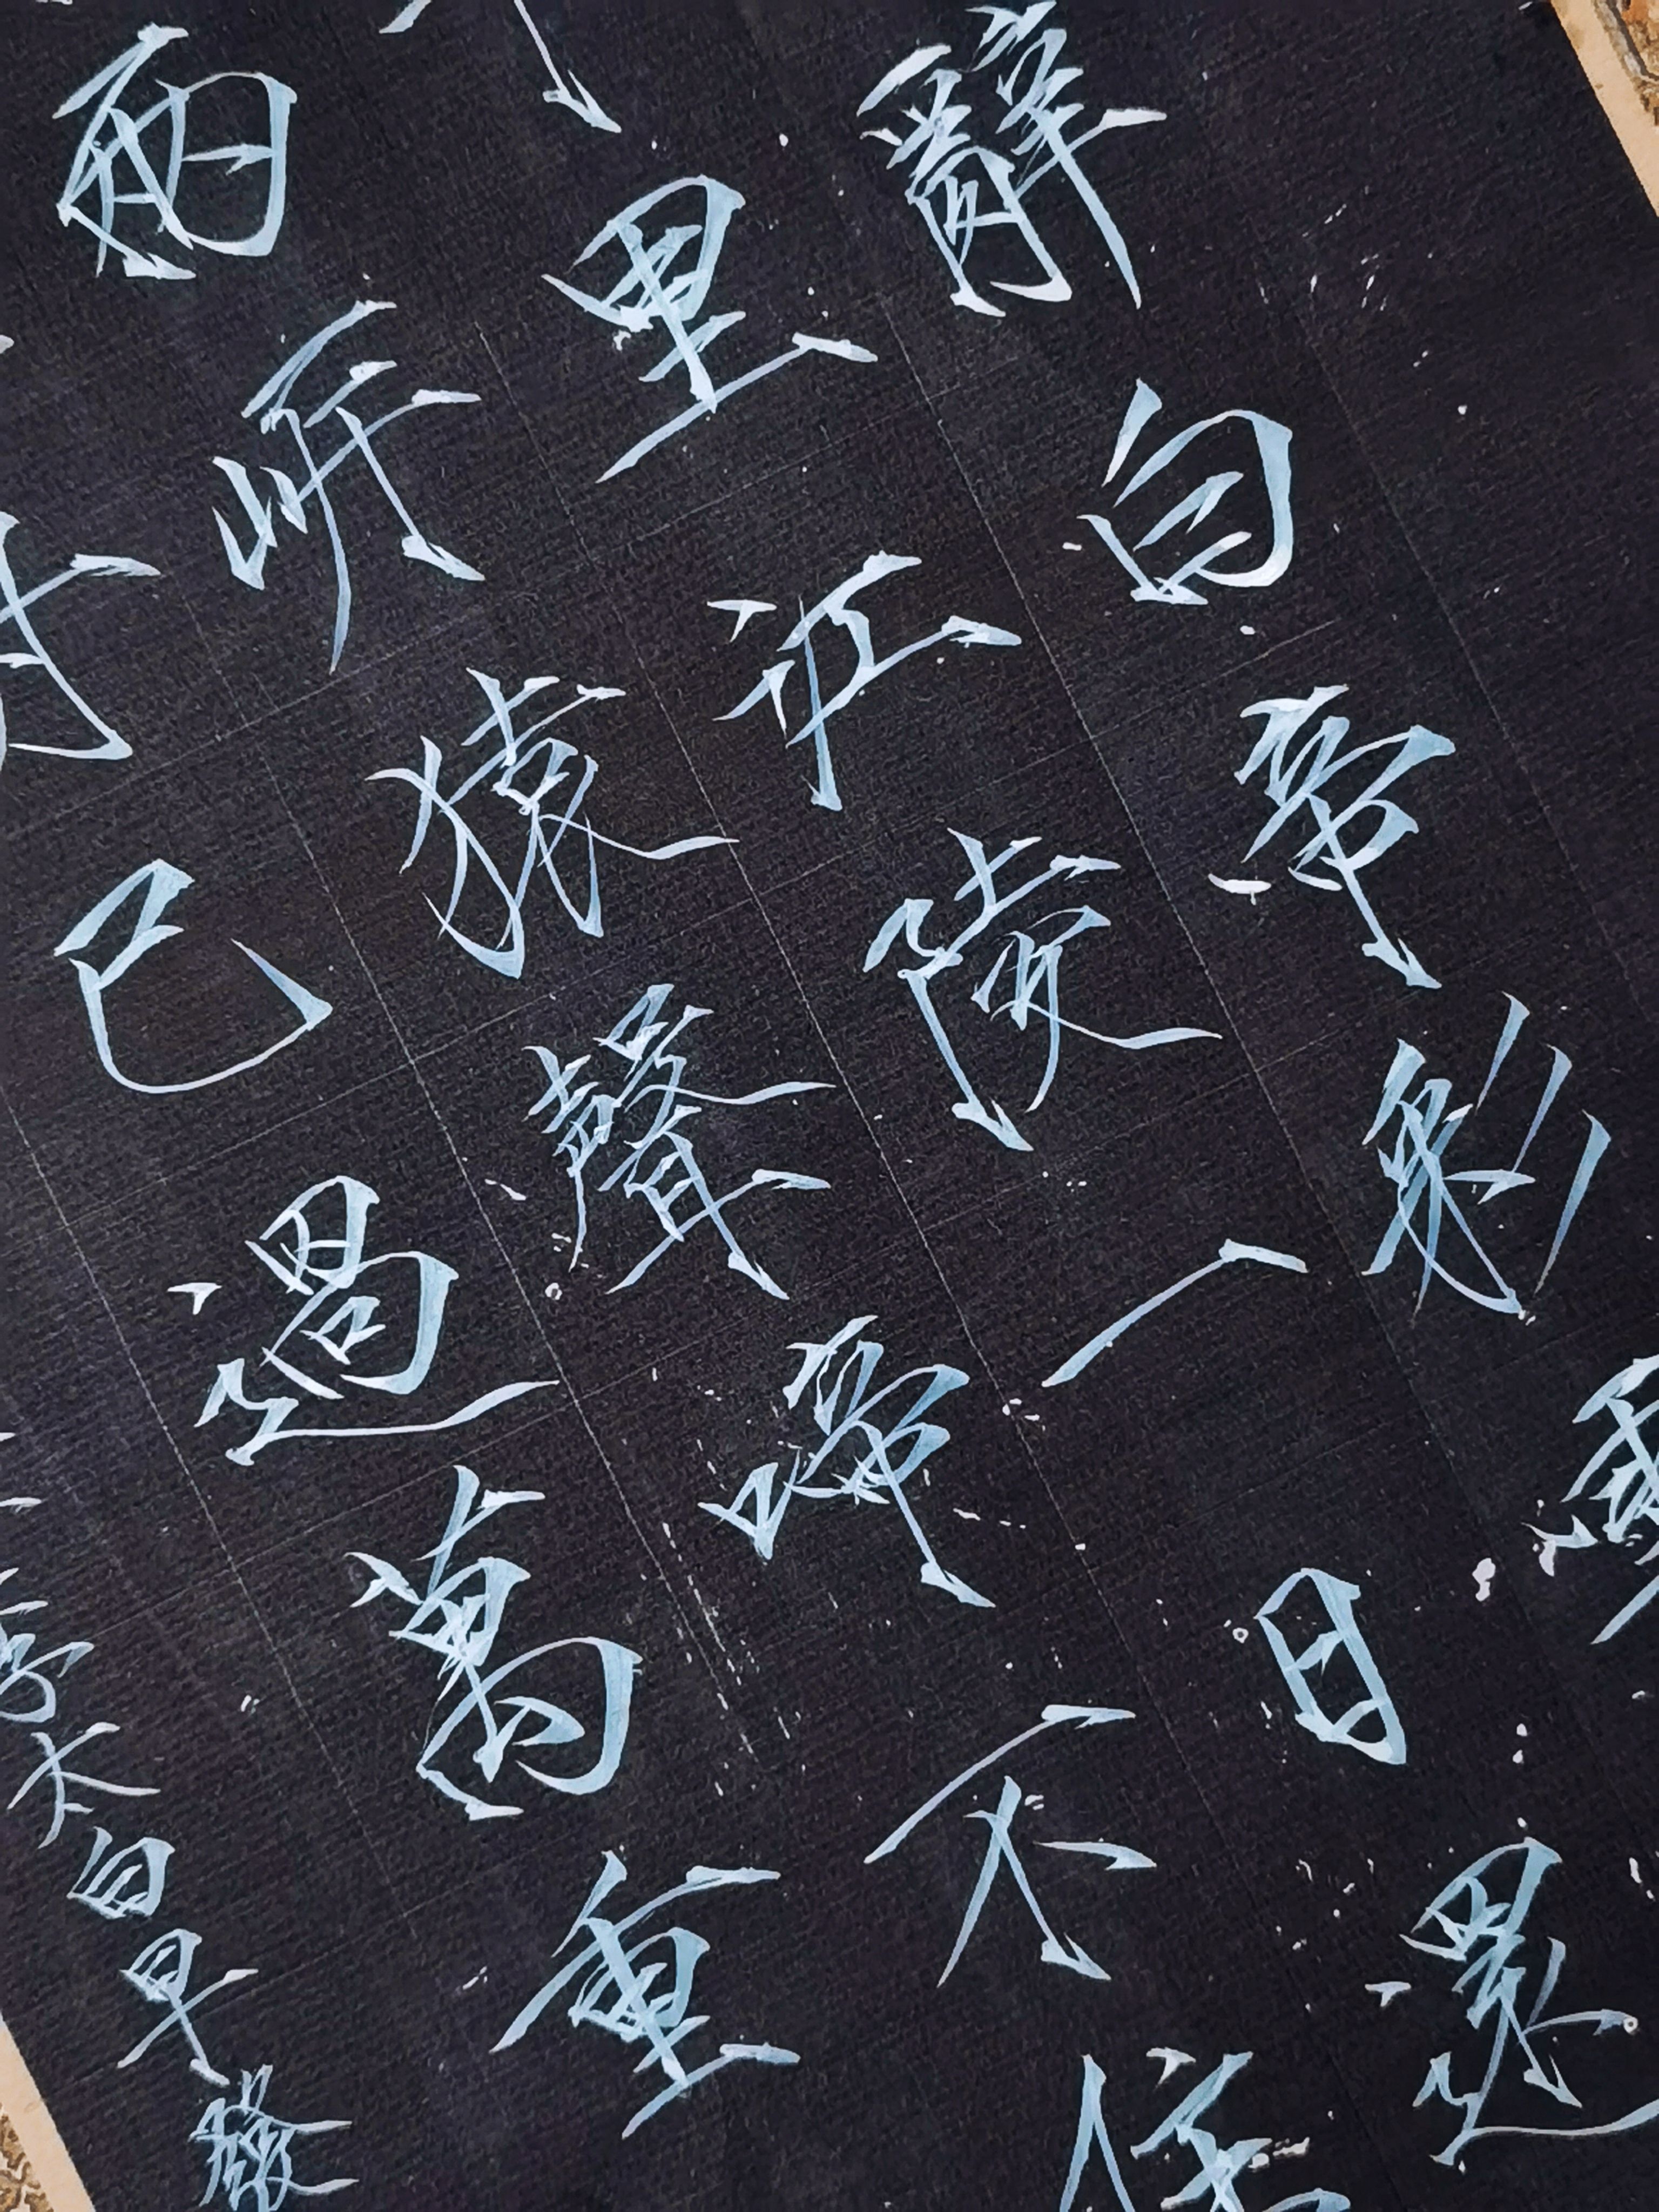 辭白帝彩
里江陵一日還
兩岸猿聲啼不住
已過萬重
李太白早發